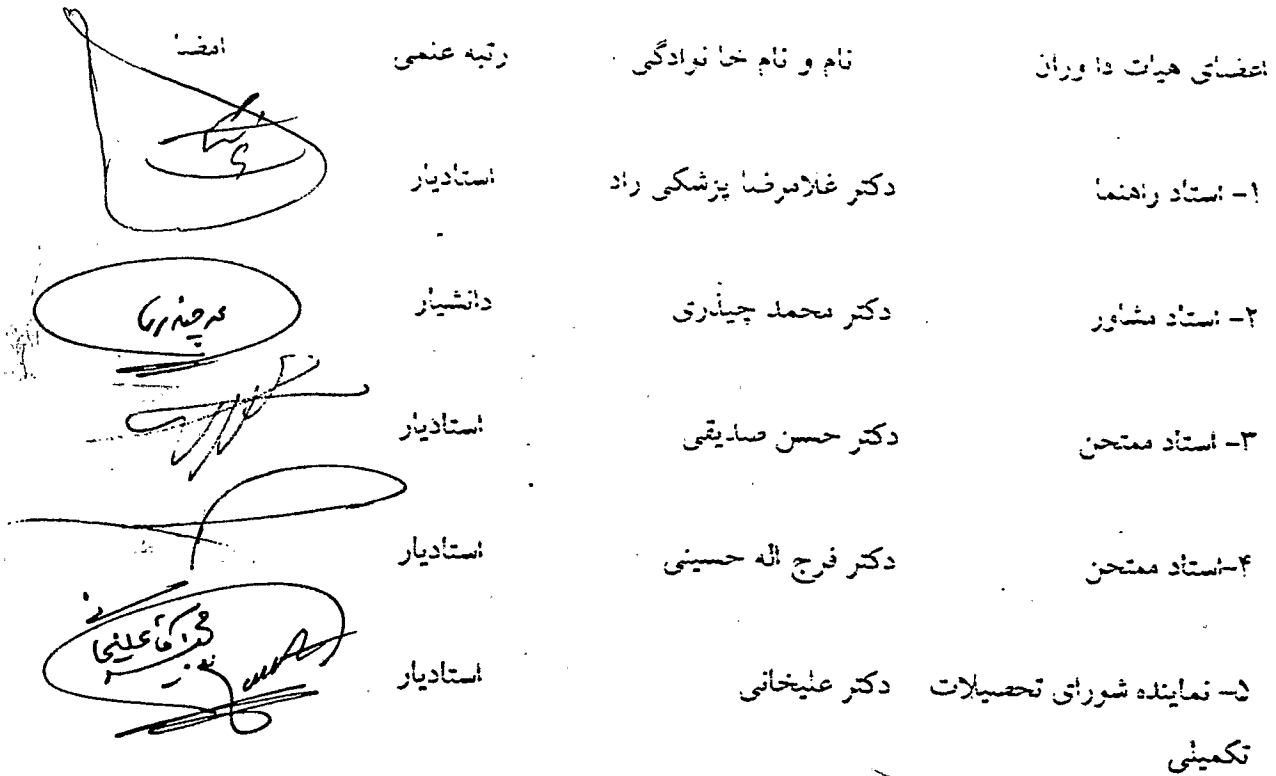 اعضای هیات دا وران نام و نام خا نوادگی رتبه علمی امضا
۱- استاد راهنما دکتر غلامرضا پزشکی راد استادیار
۲- استاد مشاور دکتر محمد چیذری دانشیار
۳- استاد ممتحن دکتر حسن صدیقی استادیار
۴-استاد ممتحن دکتر فرج اله حسینی استادیار
۵- نماینده شورای تحصیلات دکتر علیخانی استادیار
تکمیلی